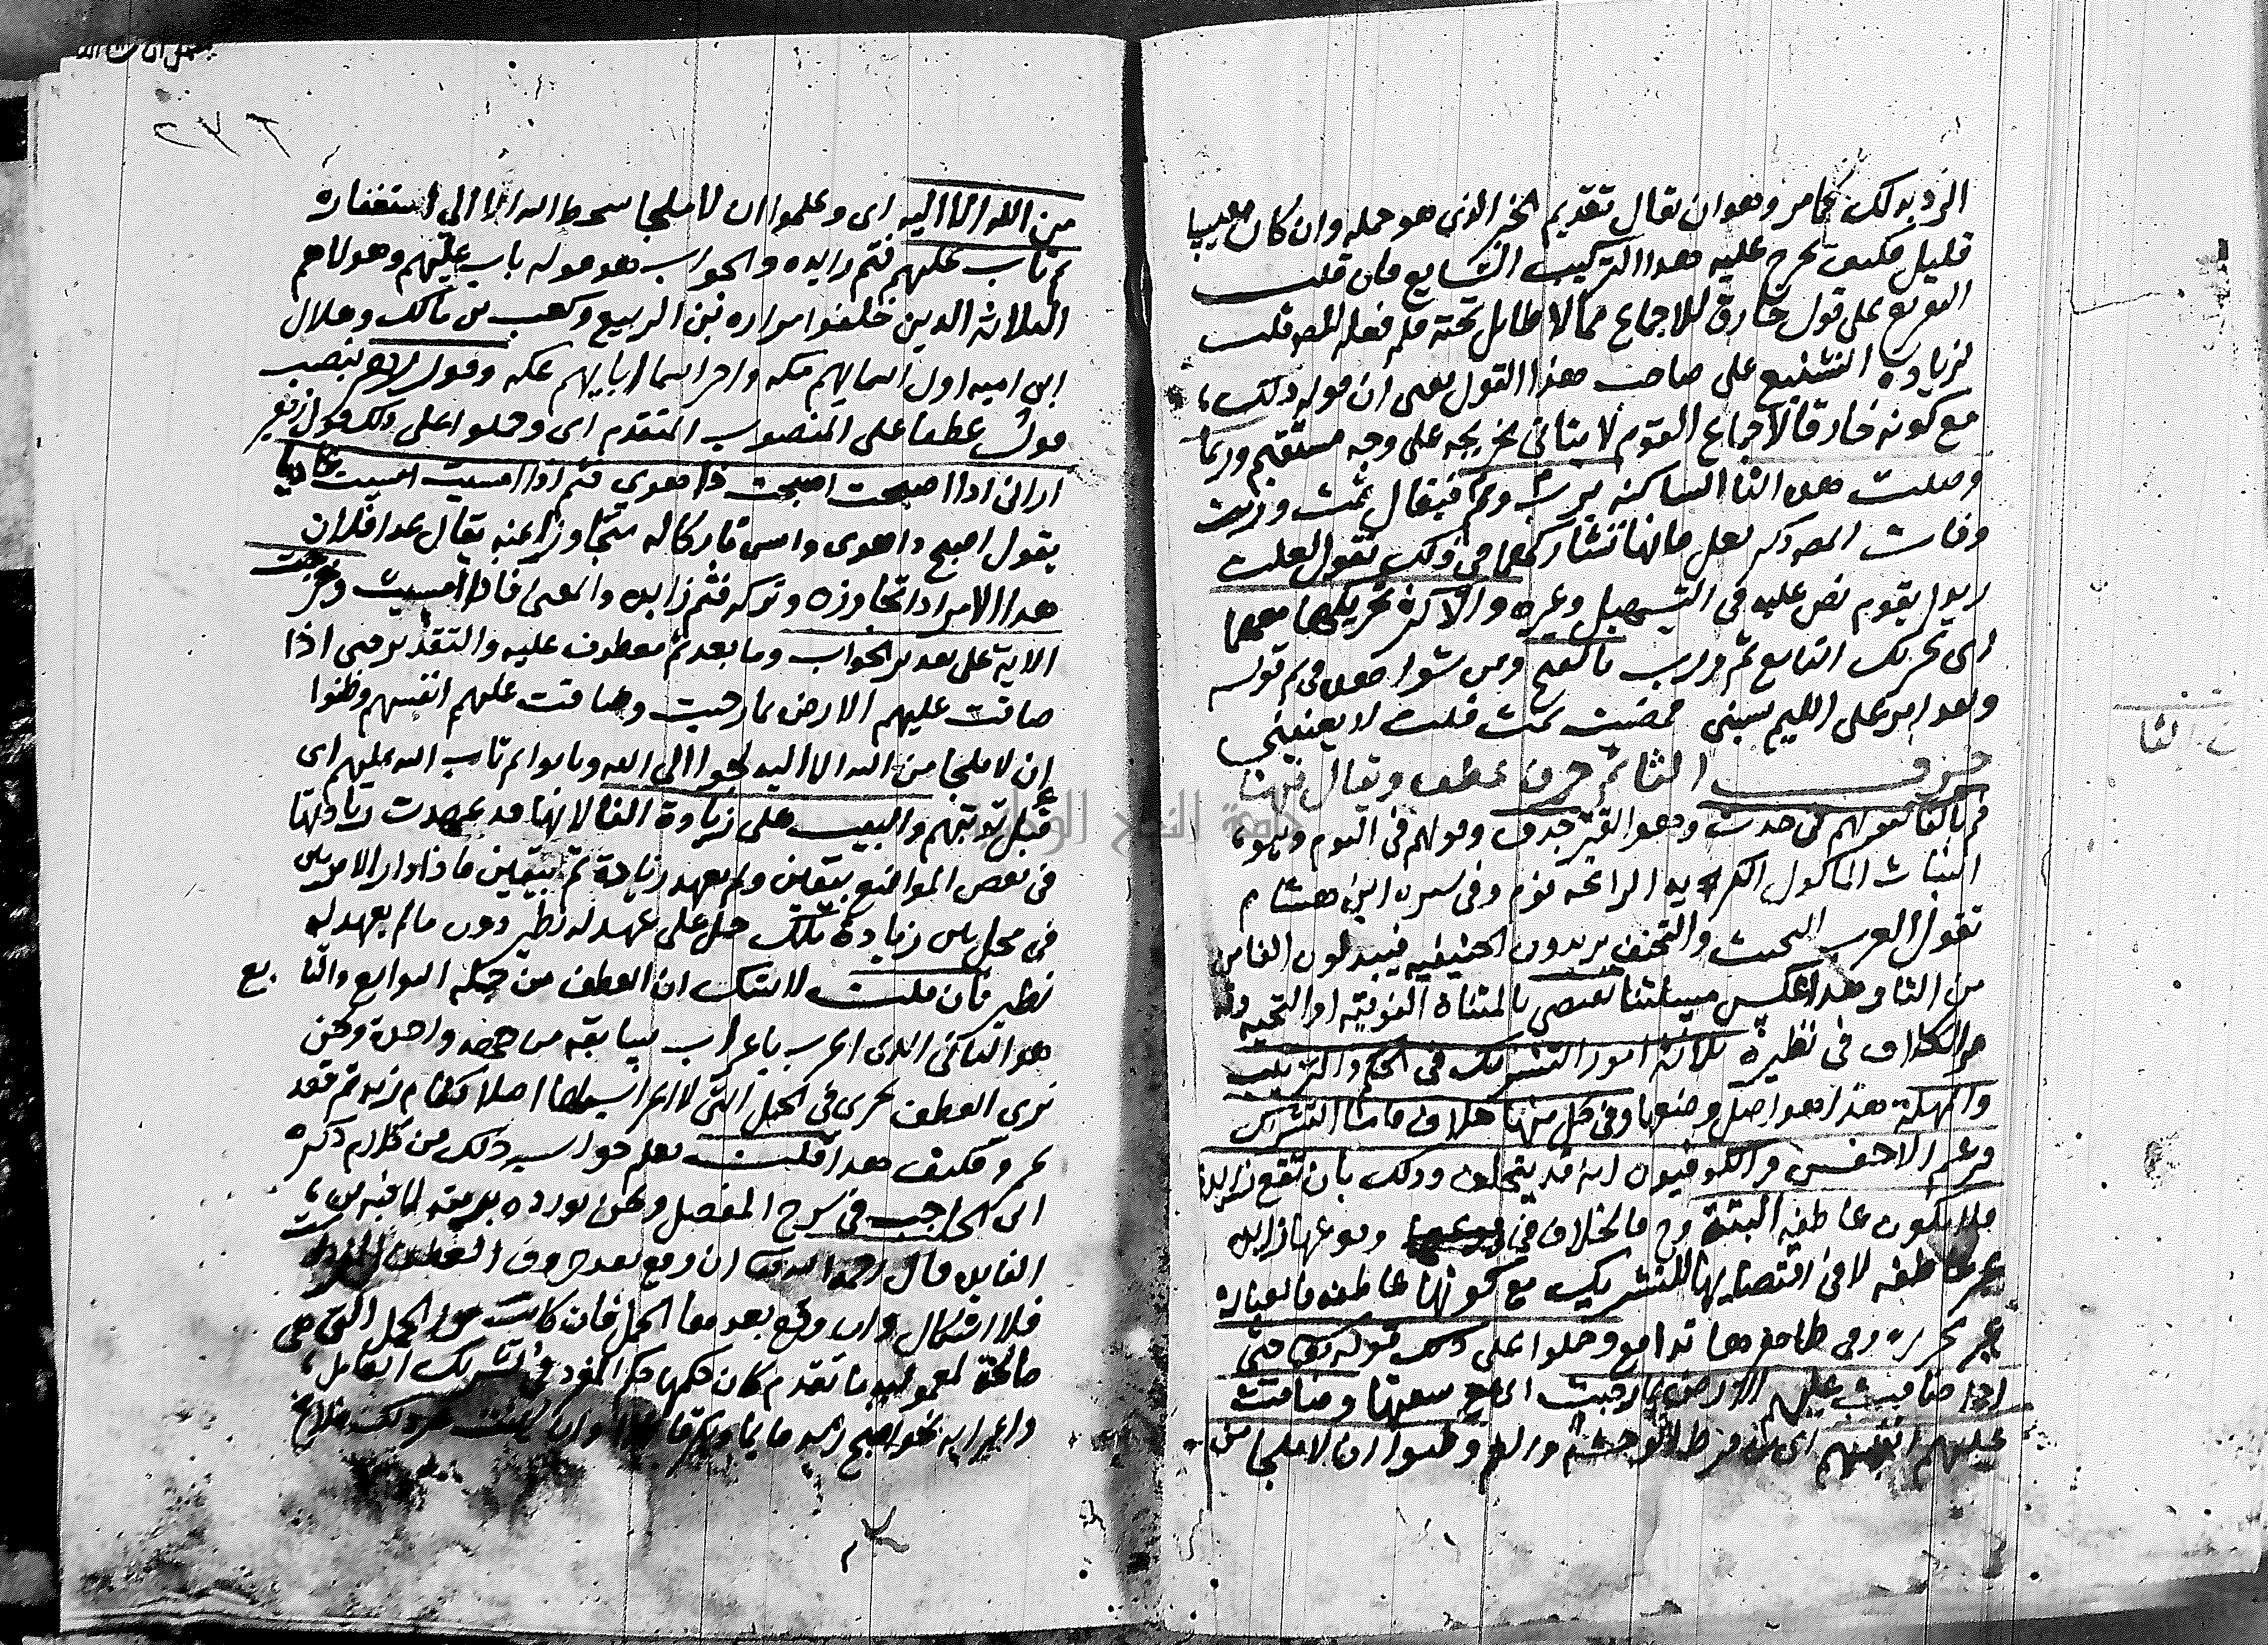 الرد بذلك كما مر وهو ان يقال تقديم الخبر الذي هو جمله وان كان معيبا
قليل فكيف يخرج عليه هذا التركيب الشايع فان قلت
التفريع على قول خارق للاجماع مما لا طايل تحته فلم فعله المص قلت
لزيادة التشنيع على صاحب هذا القول يعنى ان قوله ذلك
مع كونه خارقا لاجماع القوم لا يتاتى تخريجه على وجه مستقيم وربما
وصلت هذه التا الساكنه برب وثم فيقال ثمت وربت
وفات المص ذكر لعل فانها تشاركهما في ذلك تقول لعلت
زيدا يقوم نص عليه في التسهيل وغيره والاكثر تحريكها معهما
اى تحريك التا مع ثم ورب بالفتح ومن شواهده في ثم قوله
ولقد امر على الليم يسبنى فمضيت ثمت قلت لا يعنيني
حرف الثا ثم حرف عطف ويقال فيها
فم بالفا كقولهم في جدث وهو القبر جدف وقولهم في الثوم وهو
النبات الماكول الكريه الرائحه فوم وفي سيره ابن هشام
تقول العرب التحنث والتحنف يريدون الحنيفيه فيبدلون الفا من
من الثا وهذا عكس مسئلتنا تقتضى بالمثناة الفوقيه او التحتيه
من الكلام في نظيره ثلاثة امور التشريك في الحكم والترتيب
والمهلة هذا هو اصل وضعها وفي كل منها خلاف فاما التشريك
فزعم الاخفش والكوفيون انه قد يتخلف وذلك بان تقع زايدة
فلا تكون عاطفه البتة وح فالخلاف في وقوعها زايده
غير عاطفه لا في اقتضايها للتشريك مع كونها عاطفه فالعبارة
غير محرره وفي ظاهرها تدافع وحملوا على ذلك قوله تعالى حتى
اذا ضاقت عليهم الارض بما رحبت اى مع سعتها وضاقت
عليهم انفسهم اى من فرط الوحشة والغم وظنوا ان لا ملجا من
من الله الا اليه اى وعلموا ان لا ملجا من سخط الله الا الى استغفاره
ثم تاب عليهم فثم زايده والجواب هو قوله تاب عليهم وهولاهم
الثلاثة الذين خلفوا مراره بن الربيع وكعب بن مالك وهلال
ابن اميه اول اسمايهم مكه واخر اسما ابايهم عكه وقول زهير بنصب
قول عطفا على المنصوب المتقدم اى وحملوا على ذلك قول زهير
اراني اذا اصبحت اصبحت ذا هوى فثم اذا امسيت امسيت غاديا
يقول اصبح ذا هوى وامسى تاركا له متجاوزا عنه يقال عدا فلان
هذا الامر اذا تجاوزه وتركه فثم زايده والمعنى فاذا امسيت وخرجت
الاية على تقدير الجواب وما بعد ثم معطوف عليه والتقدير حتى اذا
ضاقت عليهم الارض بما رحبت وضاقت عليهم انفسهم وظنوا
ان لا ملجا من الله الا اليه لجوا الى الله وتابوا ثم تاب الله عليهم اى
قبل توبتهم والبيت على زيادة الفا لانها قد عهدت زيادتها
في بعض المواضع بيقين ولم يعهد زيادة ثم بيقين فاذا دار الامر بين
في محل بين زيادة تلك حمل على عهد له نظير دون ما لم يعهد له
نظير فان قلت لا شك ان العطف من جمله التوابع والتابع
هو الثاني الذى اعرب باعراب سابقه من جهه واحدة ونحن
نرى العطف يجرى في الجمل التى لا اعراب لها اصلا كقام زيد ثم قعد
عمرو فكيف هذا قلت يعلم جواب ذلك من كلام ذكره
ابن الحاجب في شرح المفصل ونحن نورده برمته لما فيه من
الفايده قال رحمه الله ان وقع بعد حروف العطف المفردات
فلا اشكال وان وقع بعدها الجمل فان كانت من الجمل التى هى
صالحة لمعمولية ما تقدم كان حكمها حكم المفرد في تشريك العامل
واعرابه نحو اصبح زيد قايما